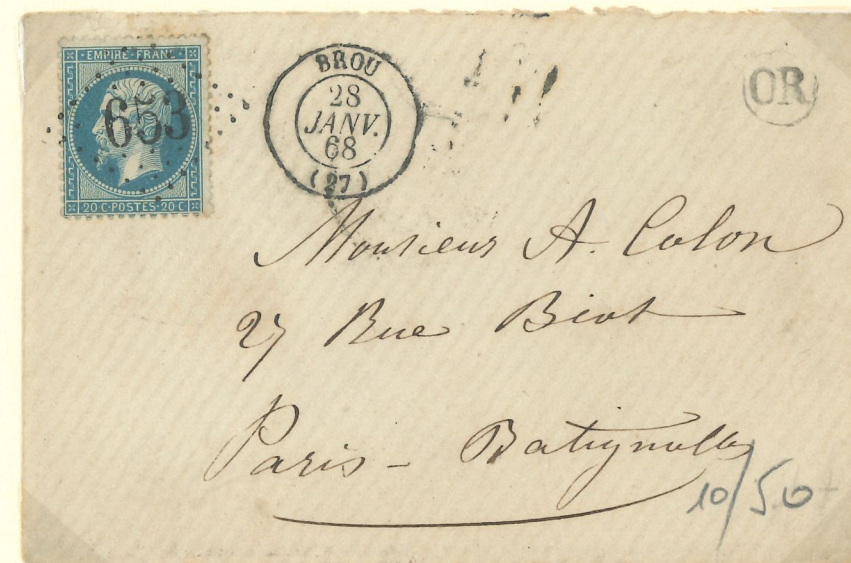 EMPIRE FRANC
653
20 C POSTES 20 C
BROU
28
JANV.
68
(27)
OR
Monsieur A. Colon
27 Rue Biot
Paris - Batignolles
10/50